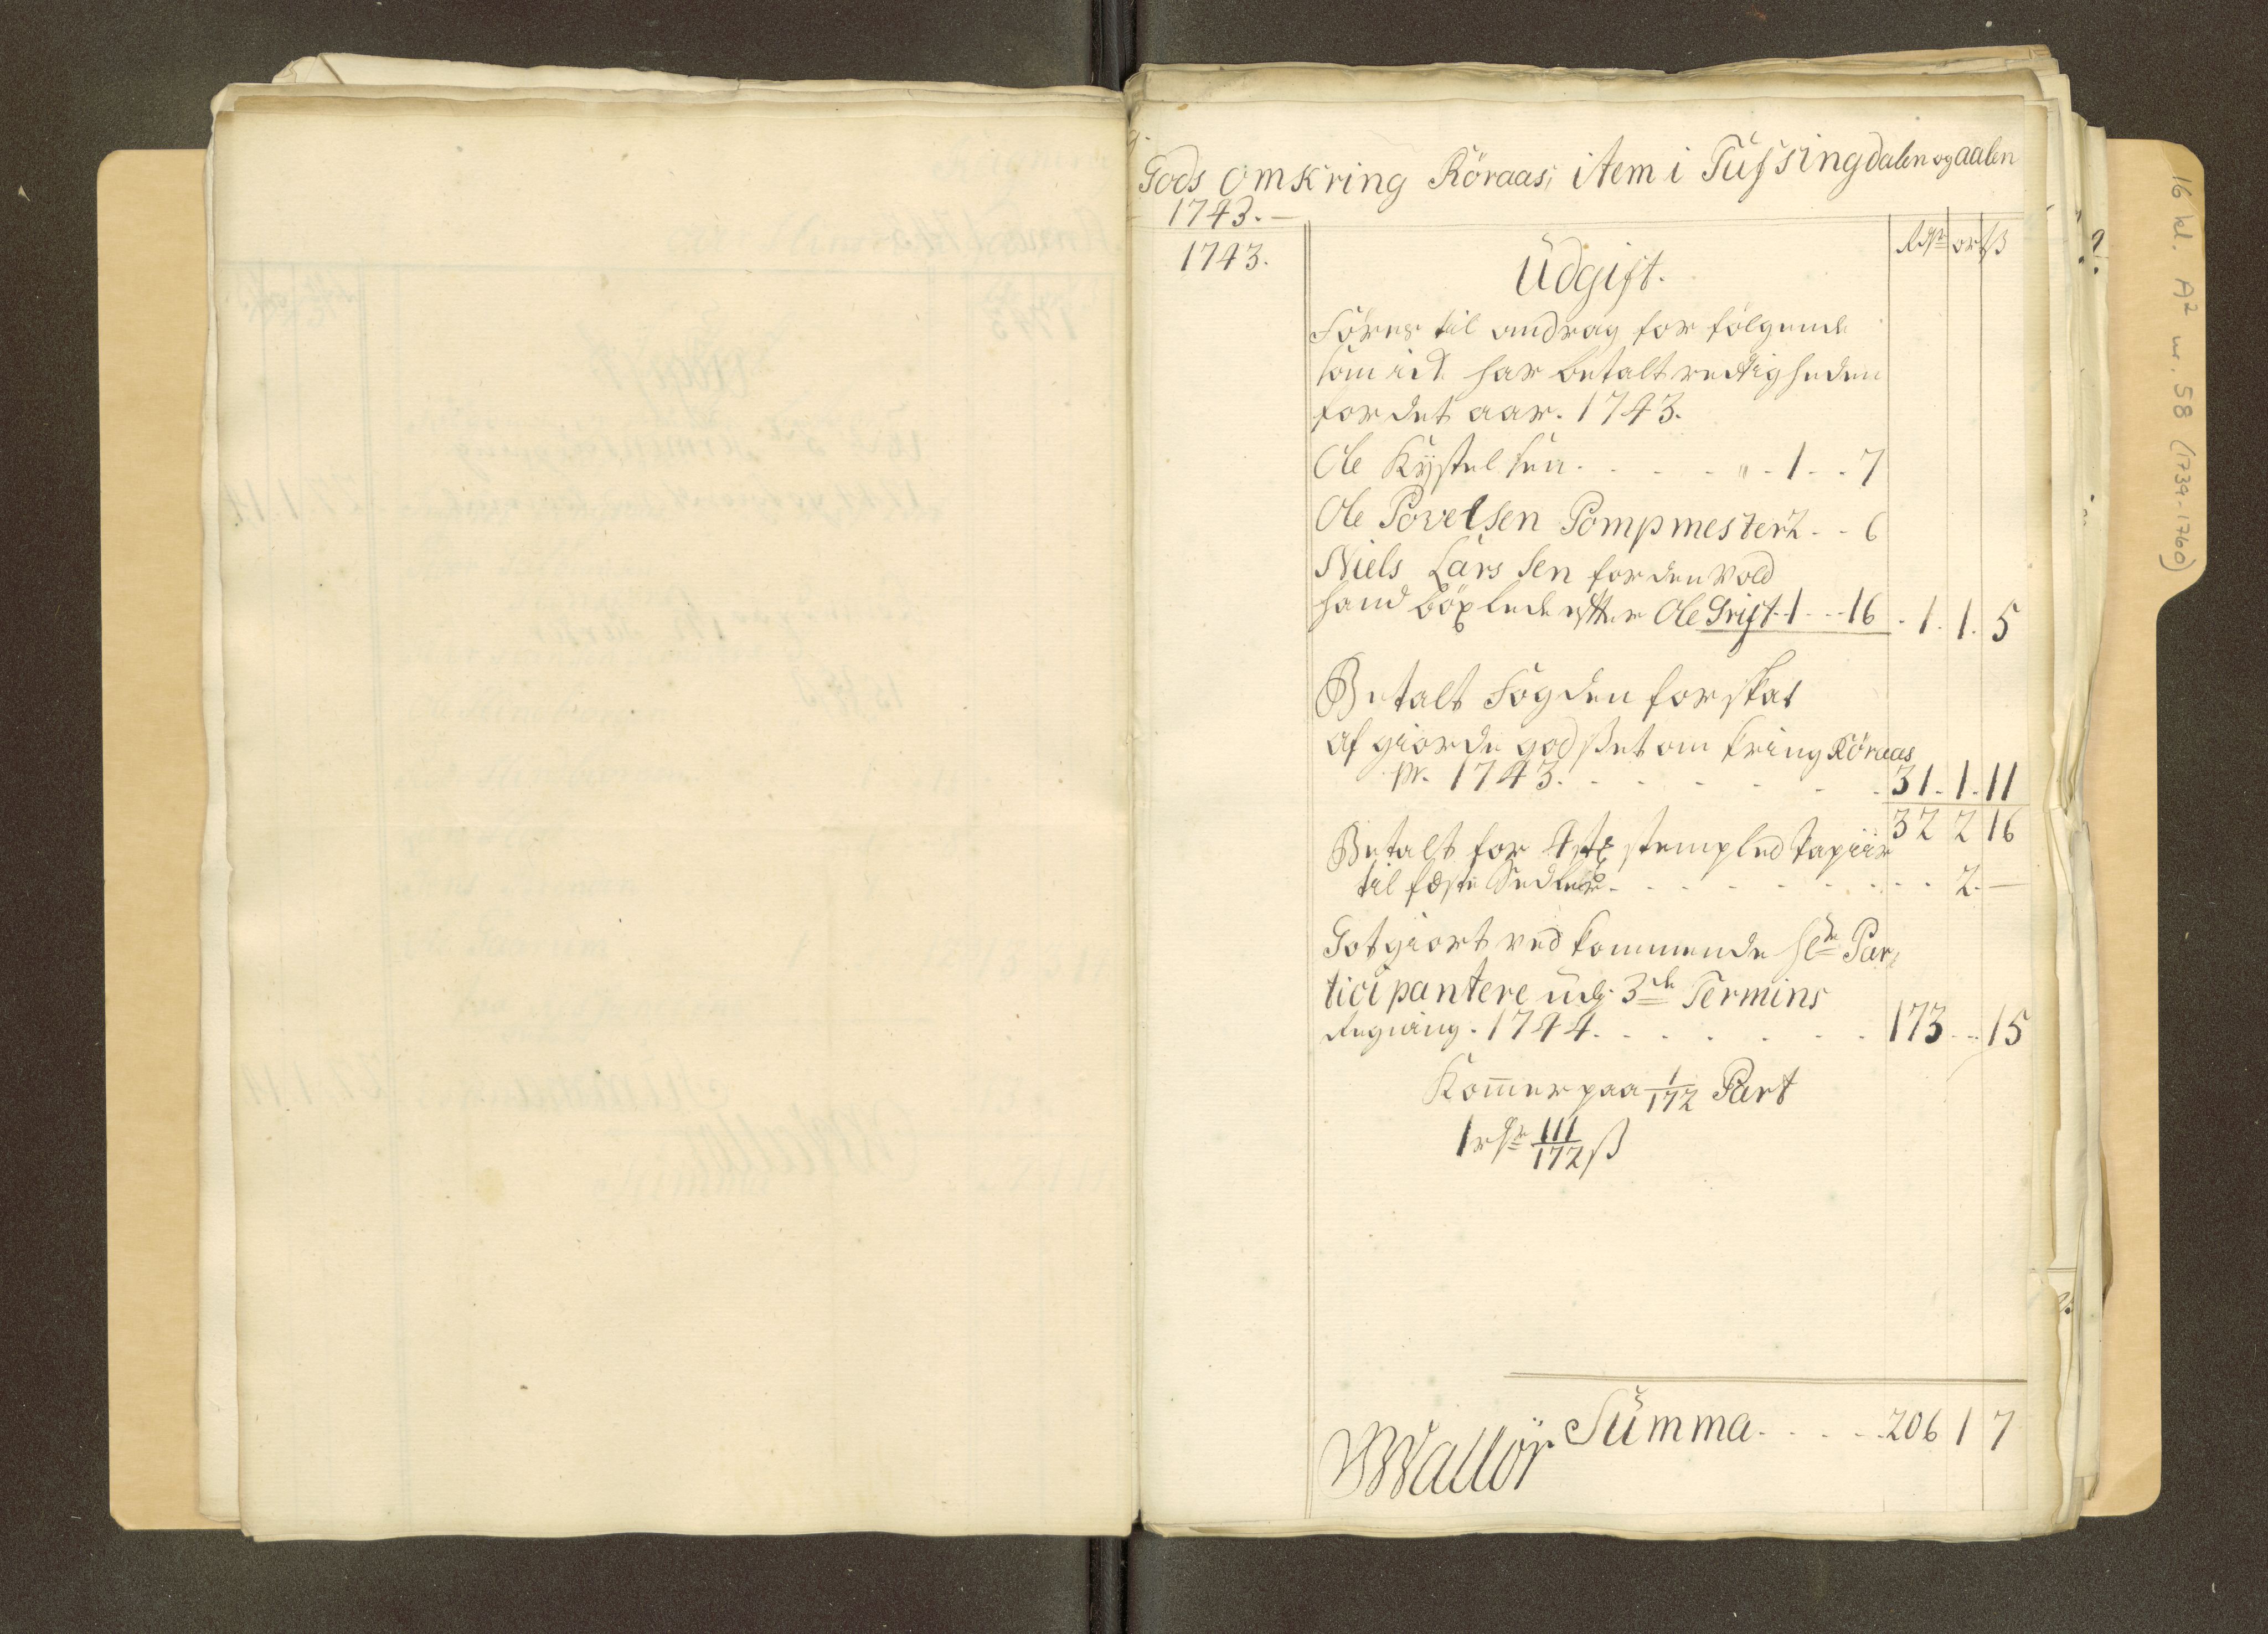 Gods omkring Röraas, item i Tufsingdalen og aalen
1743.
1743.
Rdr ort ß
Udgift.
Föres til andrag for fölgende
som icke har betalt rettigheden
for det aar. 1743.
Ole Kystelsen . . . . „ - 1 - - 7
Ole Povelsen Pompmester 2 - - 6
Niels Larssen for den Vold
hand böxlede efter Ole Drift - 1 - - 16 . 1. 1. 5
Betalt Fogden for skat
af giorde godsset omkring Röraas
pr. 1743. . . . . . 31. 1. 11
32 2 16
Betalt for 4 stk stempled papiir
til fæste Sedler . . . . . . 2. —
Gotgiort vedkommende Hr Par,
ticipantere udj 3de Termins
Regning. 1744. . . . . . 173 - - 15
Kommer paa 1/172 Part
1 rdr 111/172 ß
Summa . . . . . 206 1 7
Wallör
16 kl. A² nr. 58 (1739-1760)